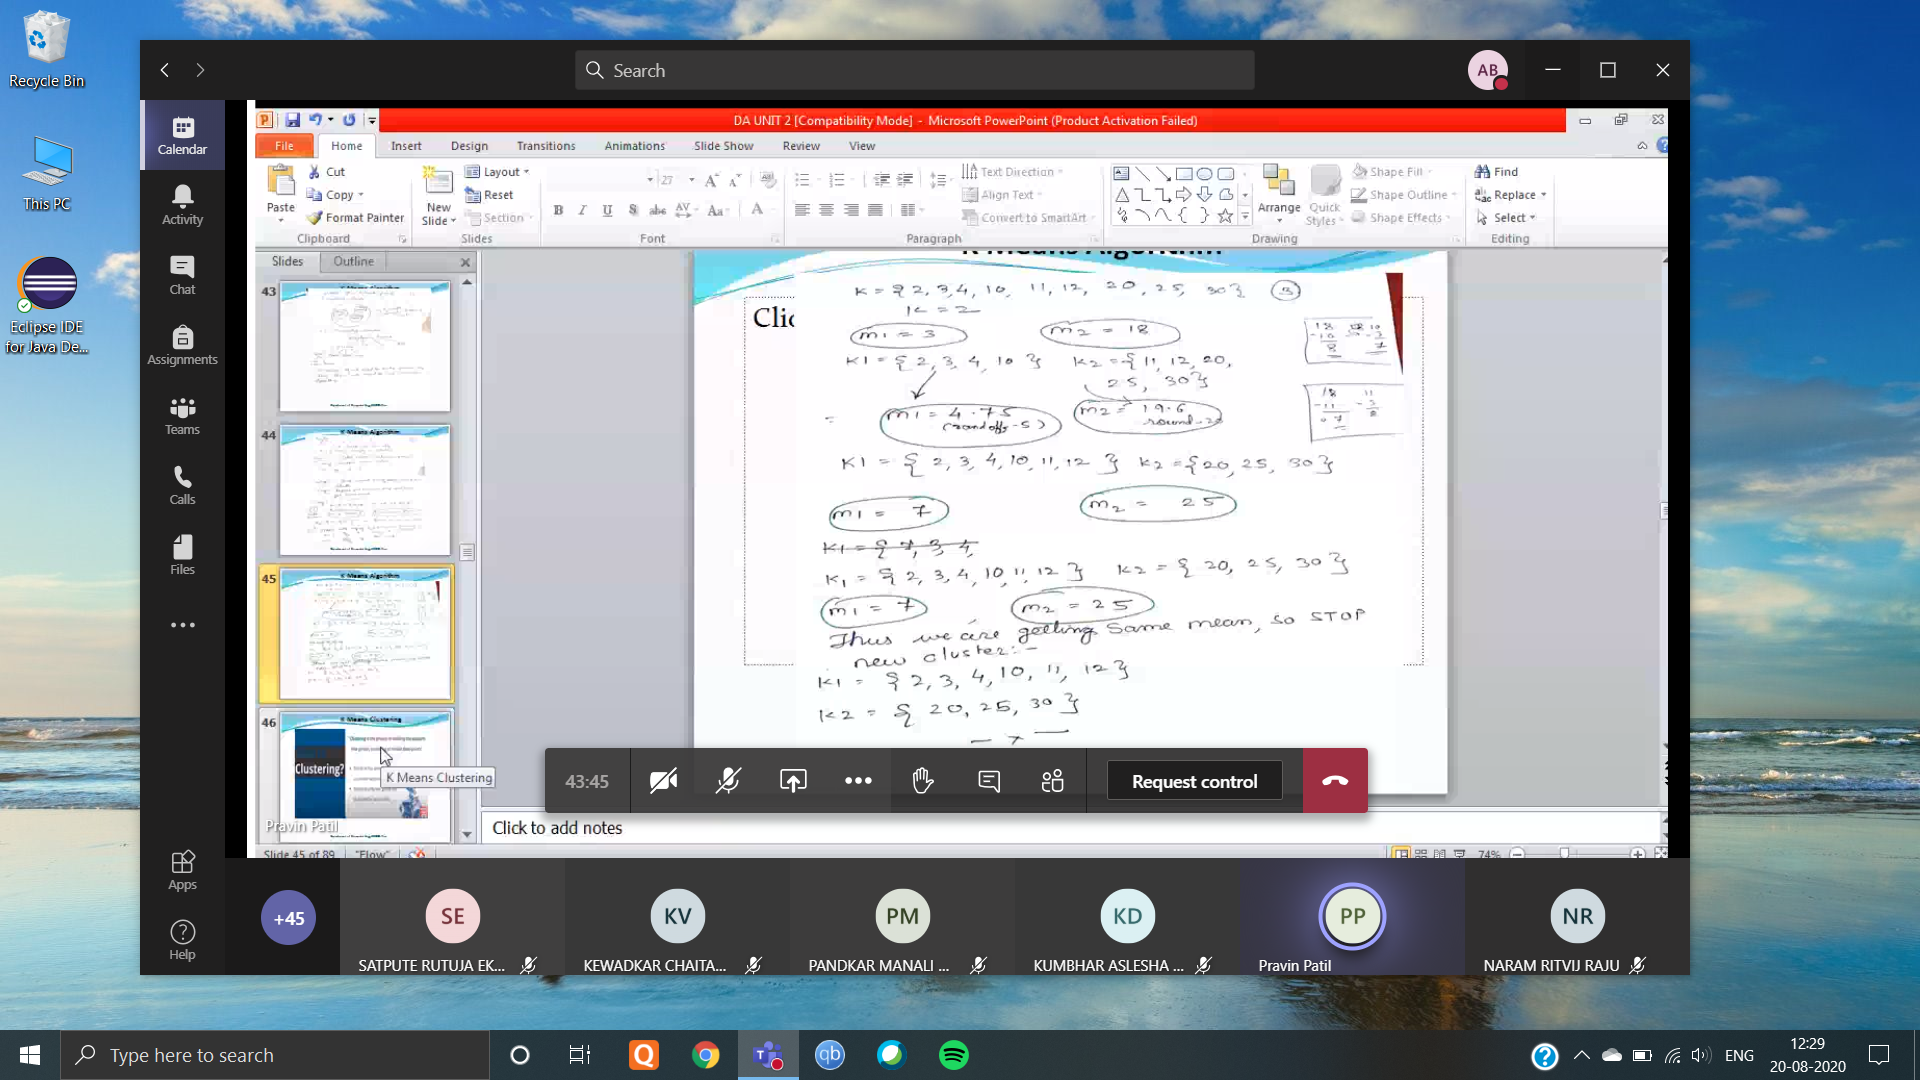 Recycle Bin
This PC
Eclipse IDE
for Java De...
Search
AB
Calendar
Activity
Chat
Assignments
Teams
Calls
Files
Apps
Help
DA UNIT 2 [Compatibility Mode] - Microsoft PowerPoint (Product Activation Failed)
File Home Insert Design Transitions Animations Slide Show Review View
Paste
Cut
Copy
Format Painter
Clipboard
New
Slide
Layout
Reset
Section
Slides
27
Font
Text Direction
Align Text
Convert to SmartArt
Paragraph
Arrange
Quick
Styles
Shape Fill
Shape Outline
Shape Effects
Drawing
Find
Replace
Select
Editing
Slides Outline
43
44
45
K Means Algorithm
46
K Means Clustering
Clustering?
K Means Clustering
Pravin Patil
K Means Algorithm
Clic
K = {2, 3, 4, 10, 11, 12, 20, 25, 30}
K = 2
m1 = 3 m2 = 18
K1 = {2, 3, 4, 10} K2 = {11, 12, 20,
25, 30}
= m1 = 4.75 m2 = 19.6
K1 = {2, 3, 4, 10, 11, 12} K2 = {20, 25, 30}
m1 = 7 m2 = 25
K1 = {2, 3, 4, 10, 11, 12} K2 = {20, 25, 30}
m1 = 7 m2 = 25
Thus we are getting same mean, so STOP
new cluster:-
K1 = {2, 3, 4, 10, 11, 12}
K2 = {20, 25, 30}
43:45
Request control
Click to add notes
Slide 45 of 89 "Flow" 74%
+45
SE
SATPUTE RUTUJA EK...
KV
KEWADKAR CHAITA...
PM
PANDKAR MANALI ...
KD
KUMBHAR ASLESHA ...
PP
Pravin Patil
NR
NARAM RITVIJ RAJU
Type here to search
ENG
12:29
20-08-2020